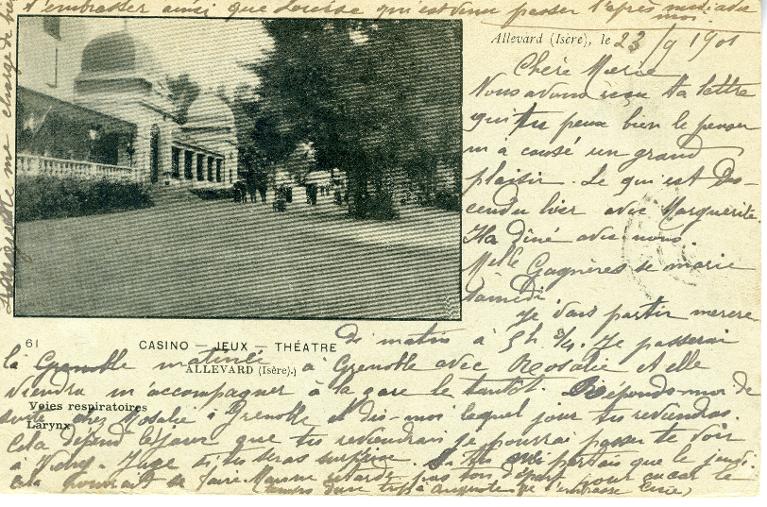 Allevard (Isère), le 23/9 1901
Chère Marie
Nous avons reçu ta lettre
qui tu peux bien le penser
m a causé un grand
plaisir. Le qui est Des-
cendu hier avec Marguerite.
Il a diné avec nous.
Melle Gagnères se marie
samedi
je vais partir mercre
di matin à 5h 3/4. Je passerai
la matinée à Grenoble avec Rosalie et elle
viendra m'accompagner à la gare le tantôt. Réponds-moi de
suite chez Rosalie à Grenoble et dis-moi lequel jour tu reviendras.
Cela dépend le jour que tu reviendrais je pourrai passer te voir
à Vichy. Juge si tu seras surprise. Si tu ne partais que le jeudi.
cela pourrait se faire Maman
t'embrasser ainsi que Louise qui est venue passer l'après midi avec
moi.
me charge de
61
CASINO — JEUX — THÉATRE
ALLEVARD (Isère).
Voies respiratoires
Larynx